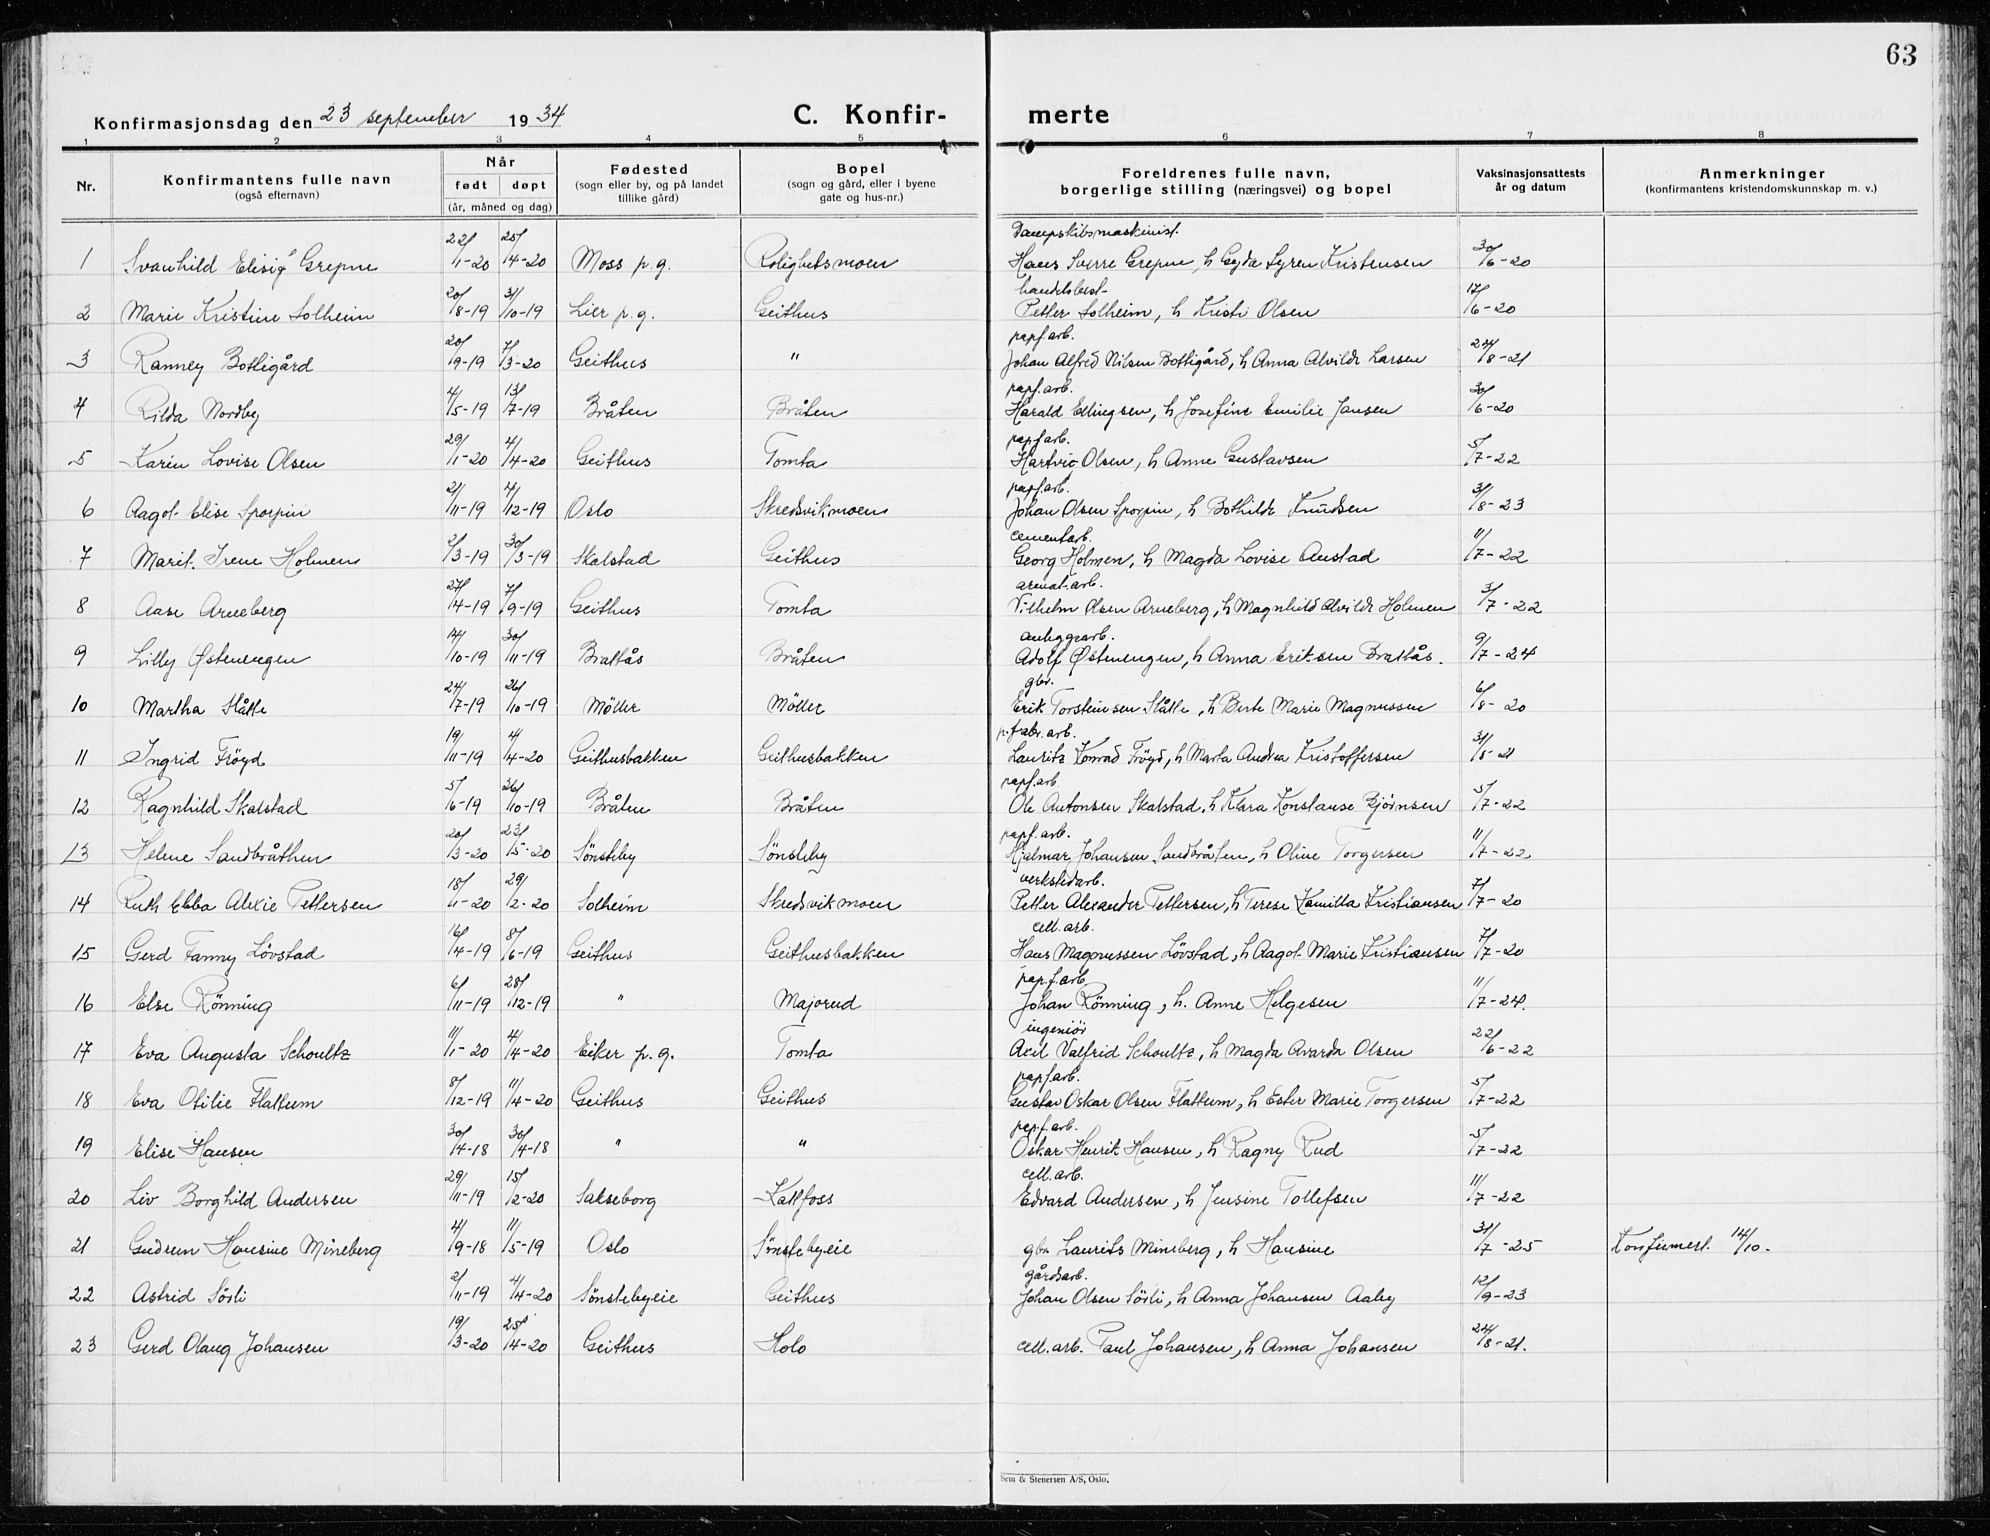 63
Konfirmasjonsdag den 23 september 1934 C. Konfir- merte
1 2 3 4 5 6 7 8
Nr. Konfirmantens fulle navn (også efternavn) Når født døpt (år, måned og dag) Fødested (sogn eller by, og på landet tillike gård) Bopel (sogn og gård, eller i byene gate og hus-nr.) Foreldrenes fulle navn, borgerlige stilling (næringsvei) og bopel Vaksinasjonsattests år og datum Anmerkninger (konfirmantens kristendomskunnskap m. v.)
Dampskibsmaskinist.
1 Svanhild Grepne 22/1-20 25/4-20 Moss p.g. Rolighetsmoen Hans Sverre Grepne, h Gyda Syren Kristensen 30/6-20
handelsbest-
2 Marie Kristine Solheim 20/8-19 31/10-19 Lier p.g. Geithus Petter Solheim, h Kristi Olsen 17/6-20
papf arb.
3 Ranney Bottigård 20/9-19 7/3-20 Geithus " Johan Alfred Nilsen Bottigård, h Anna Alvilde Larsen 24/8-21
papf. arb.
4 Rilda Nordby 4/5-19 13/7-19 Bråten Bråten Harald Ellingsen, h Josefine Emilie Jansen 30/6-20
papf arb.
5 Karin Lovise Olsen 29/1-20 4/4-20 Geithus Tomta Hartvig Olsen, h Anne Gustavsen 5/7-22
papf. arb.
6 Aagot Elise Sporpin 21/11-19 4/12-19 Oslo Skredsvikmoen Johan Olsen Sporpin, h Bothilde Knudsen 31/8-23
cementarb.
7 Marit. Irene Holmen 2/3-19 30/3-19 Skalstad Geithus Georg Holmen, h Magda Lovise Anstad 11/7-22
8 Aase Arneberg 27/4-19 7/9-19 Geithus Tomta Vilhelm Olsen Arneberg, h Magnhild Alvilde Holmen 3/7-22
anleggsarb.
9 Lilly Østenengen 14/10-19 30/11-19 Brattås Bråten Adolf Østenengen, h Anna Eriksen Brattås. 9/7-24
gbr.
10 Martha Slåtte 24/7-19 26/10-19 Möller Möller Erik Torsteinsen Slåtte, h Berte Marie Magnussen 6/8-20
p.fabr. arb.
11 Ingrid Fröyd 19/11-19 4/4-20 Geithusbakken Geithusbakken Lauritz Konrad Fröyd, h Marta Andrea Kristoffersen 31/8-21
papf. arb
12 Ragnhild Skalstad 5/6-19 26/10-19 Bråten Bråten Ole Antonsen Skalstad, h Klara Konstanse Bjørnsen 5/7-22
papf. arb.
13 Helene Sandbråthen 20/3-20 23/5-20 Sönsteby Sönsteby Hjalmar Johansen Sandbråten, h Oline Torgersen 11/7-22
verkstedarb.
14 Ruth Ebba Alexie Pettersen 18/1-20 29/2-20 Solheim Skredsvikmoen Petter Alexander Pettersen, h Terese Kamilla Kristiansen 7/7-20
cell. arb.
15 Gerd Fanny Lövstad 16/4-19 8/6-19 Geithus Geithusbakken Hans Magnussen Lövstad, h Aagot Marie Kristiansen 7/7-20
papf. arb
16 Else Rönning 6/11-19 28/12-19 " Majorud Johan Rönning, h. Anne Helgesen 11/7-24.
ingeniör
17 Eva Augusta Schoultz 11/1-20 4/4-20 Eiker p.g. Tomta Axil Valfrid Schoultz, h Magda Avarda Olsen 22/6-22
papf. arb.
18 Eva Otilie Flattum 8/12-19 11/4-20 Geithus Geithus Gustav Oskar Olsen Flattum, h Ester Marie Torgersen 5/7-22
pap.f. arb.
19 Elise Hansen 30/4-18 30/4-18 " " Oskar Henrik Hansen, h Ragny Rud 5/7-22
cell. arb.
20 Liv Borghild Andersen 29/11-19 15/2-20 Sakseborg Kattfoss Edvard Andersen, h Jensine Tollefsen 11/7-22
21 Gudrun Hansine Mineberg 4/9-18 11/5-19 Oslo Sønstebyeie gbr. Laurits Mineberg, h Hansine 31/7-25 Konfirmert. 14/10.
gårdsarb.
22 Astrid Sörli 2/11-19 4/4-20 Sönstebyeie Geithus Johan Olsen Sörli, h Anna Johansen Aaby 12/9-23
23 Gerd Olaug Johansen 19/3-20 25/4-20 Geithus Holo cell. arb. Paul Johansen, h Anna Johansen 24/8-21.
Sem & Stenersen A/S, Oslo.